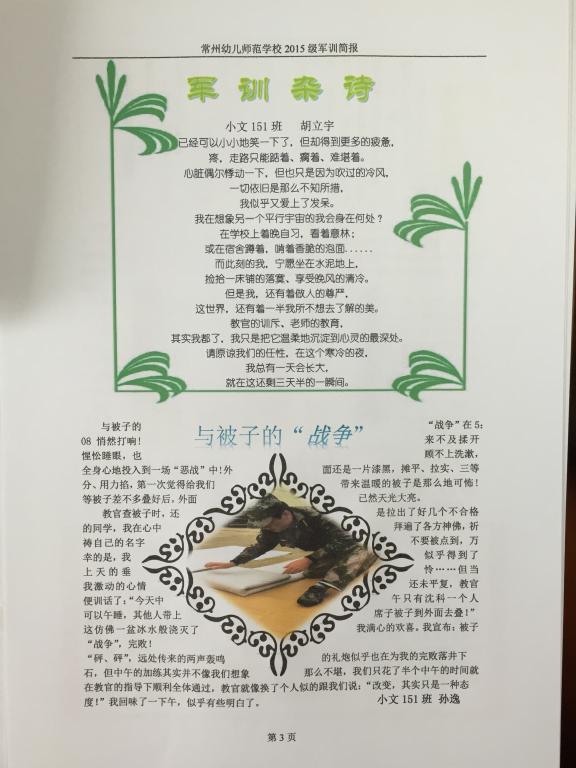 常州幼儿师范学校 2015 级军训简报
军训杂诗
小文 151 班 胡立宇
已经可以小小地笑一下了，但却得到更多的疲惫，
疼，走路只能踮着、瘸着、难堪着。
心脏偶尔悸动一下，但也只是因为吹过的冷风，
一切依旧是那么不知所措，
我似乎又爱上了发呆。
我在想象另一个平行宇宙的我会身在何处？
在学校上着晚自习，看着意林；
或在宿舍蹲着，啃着香脆的泡面......
而此刻的我，宁愿坐在水泥地上，
捡拾一床铺的落寞、享受晚风的清冷。
但是我，还有着做人的尊严，
这世界，还有着一半我所不想去了解的美。
教官的训斥、老师的教育，
其实我都了，我只是把它温柔地沉淀到心灵的最深处。
请原谅我们的任性，在这个寒冷的夜，
我总有一天会长大，
就在这还剩三天半的一瞬间。
与被子的“战争”
与被子的 “战争”在 5:
08 悄然打响! 来不及揉开
惺忪睡眼，也 顾不上洗漱，
全身心地投入到一场“恶战”中!外 面还是一片漆黑，摊平、拉实、三等
分、用力掐，第一次觉得给我们 带来温暖的被子是那么地可怖!
等被子差不多叠好后，外面 已然天光大亮。
教官查被子时，还 是拉出了好几个不合格
的同学，我在心中 拜遍了各方神佛，祈
祷自己的名字 不要被点到，万
幸的是，我 似乎得到了
上天的垂 怜……但当
我激动的心情 还未平复，教官
便训话了：“今天中 午只有沈科一个人
可以午睡，其他人带上 席子被子到外面去叠!”
这仿佛一盆冰水般浇灭了 我满心的欢喜。我宣布：被子
“战争”，完败!
“砰、砰”，远处传来的两声轰鸣 的礼炮似乎也在为我的完败落井下
石，但中午的加练其实并不像我们想象 那么不堪，我们只花了半个中午的时间就
在教官的指导下顺利全体通过，教官就像换了个人似的跟我们说：“改变，其实只是一种态
度!”我回味了一下午，似乎有些明白了。 小文 151 班 孙逸
第 3 页